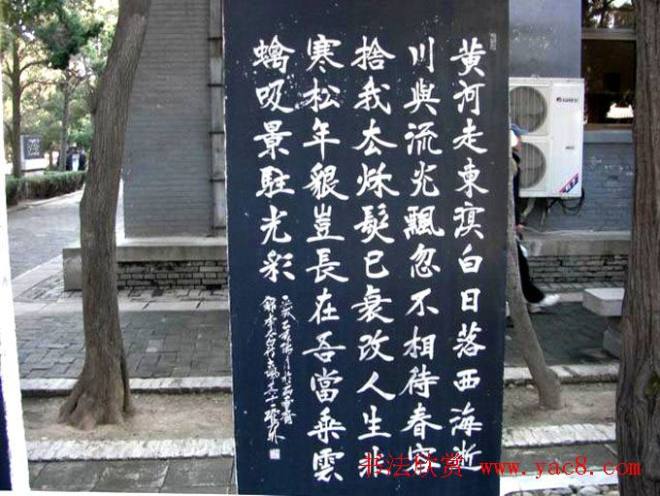 黄河走東溟白日落西海逝
川與流光飄忽不相待春容
捨我去秋髮已衰改人生非
寒松年貌豈長在吾當乘雲
螭吸景駐光彩
书法欣赏 www.yac8.com